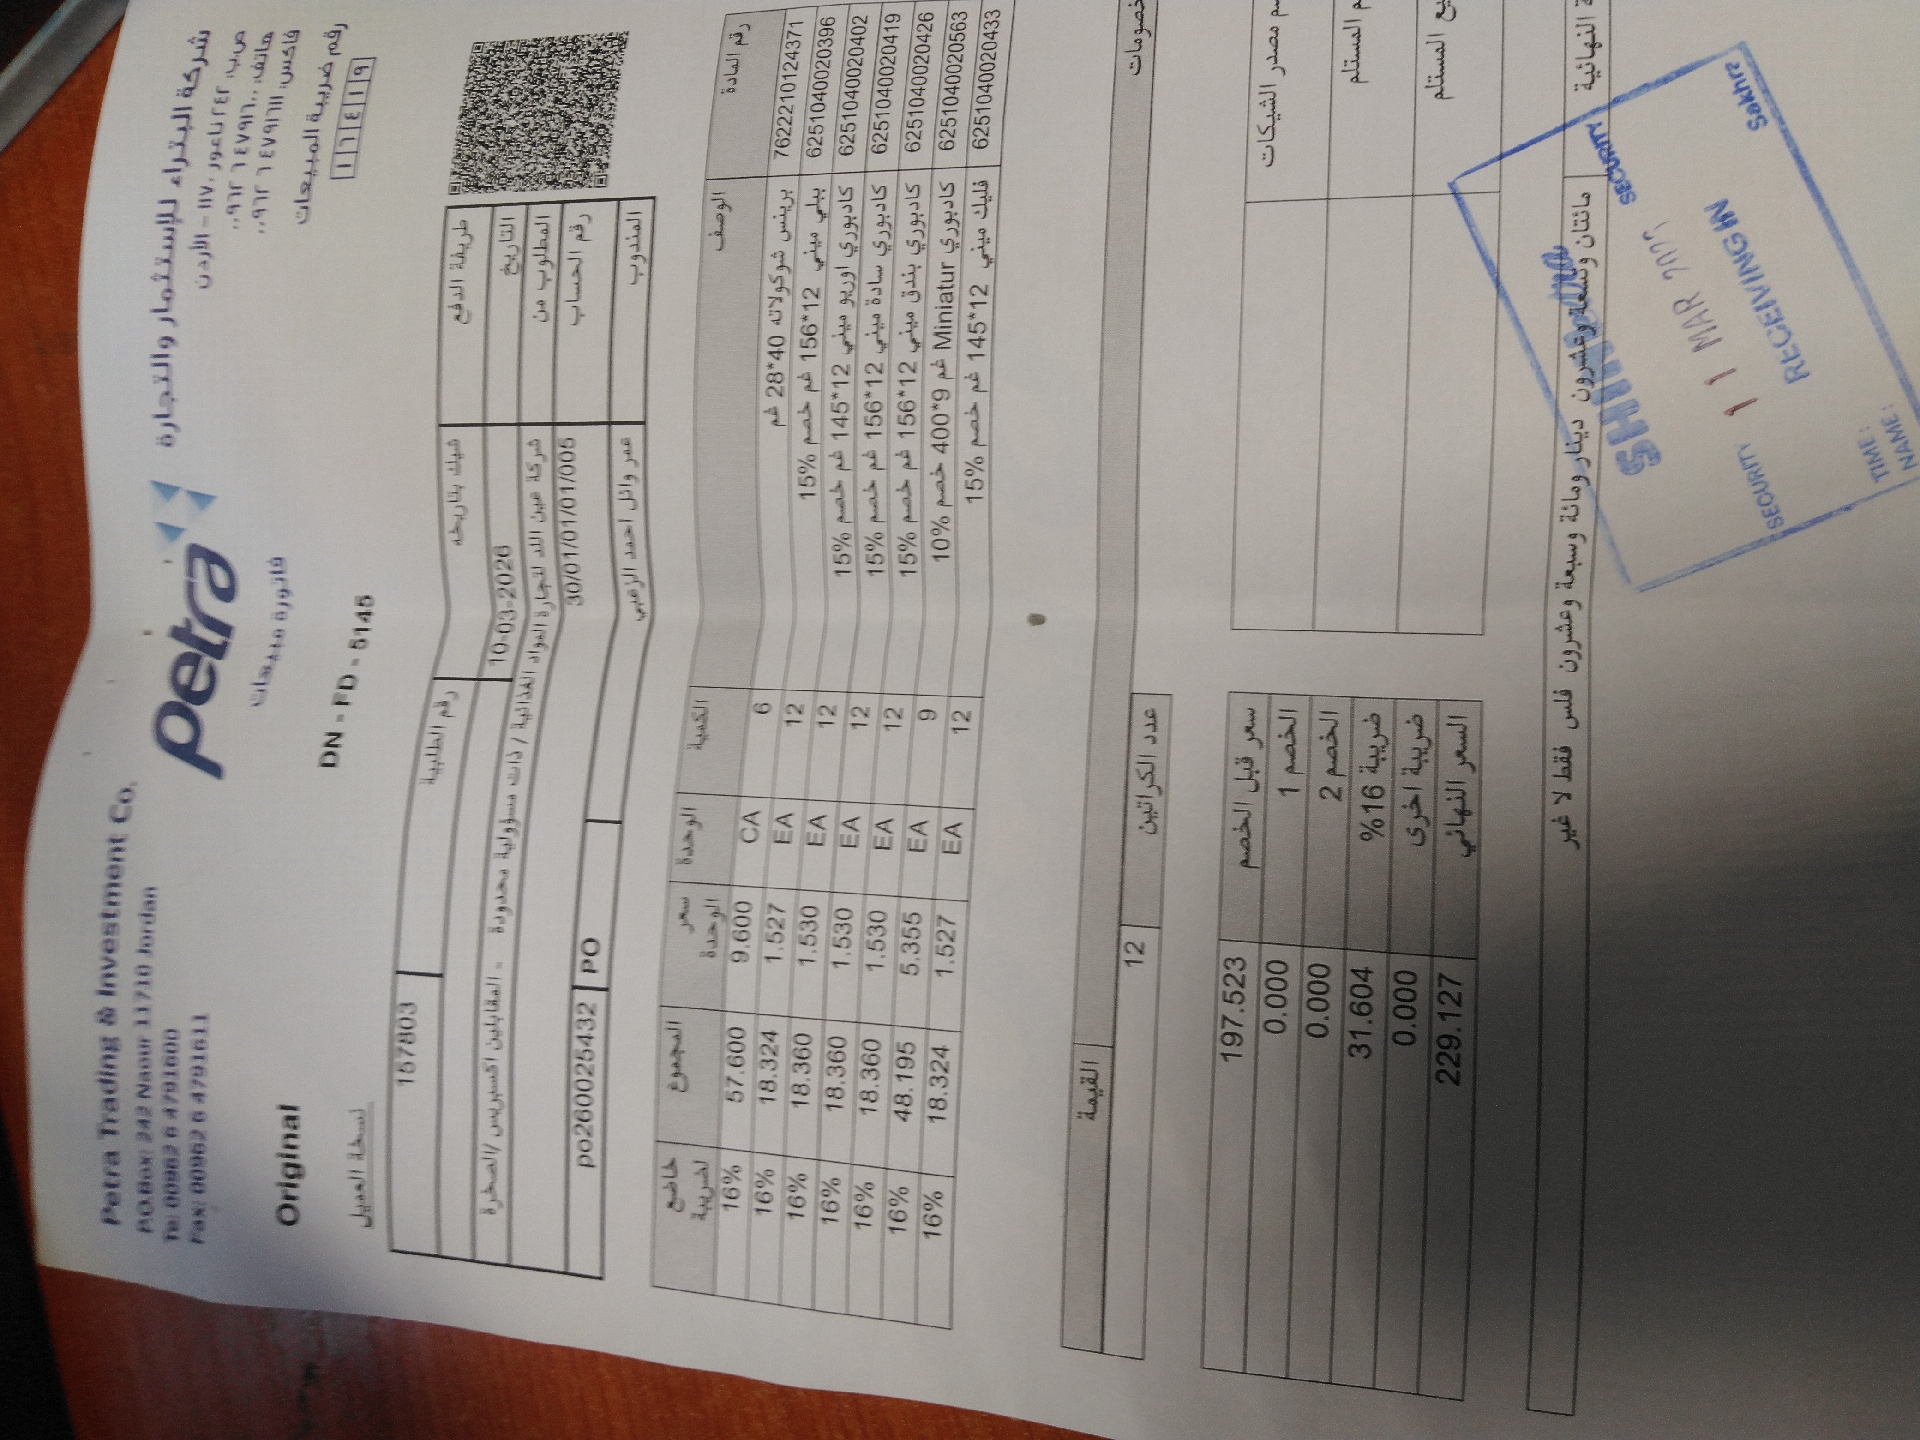 Petra Trading & Investment Co.
P.O.Box: 242 Naour 11710 Jordan
Tel: 00962 6 4791600
Fax: 00962 6 4791611
petra
شركة البتراء للإستثمار والتجارة
ص.ب: ٢٤٢ ناعور ١١٧١٠ - الأردن
هاتف: ٤٧٩١٦٠٠ ٦ ٠٠٩٦٢
فاكس: ٤٧٩١٦١١ ٦ ٠٠٩٦٢
رقم ضريبة المبيعات
فاتورة مبيعات
Original
DN - FD - 5145
نسخة العميل
طريقة الدفع شيك بتاريخه رقم الطلبية 157803
التاريخ 10-03-2026
المطلوب من شركة عين اللد لتجارة المواد الغذائية / ذات مسؤولية محدودة - المقابلين اكسبريس /الصخرة
رقم الحساب 30/01/01/01/005
المندوب عمر وائل احمد الزعبي PO po260025432
رقم المادة الوصف الكمية الوحدة سعر الوحدة المجموع خاضع لضريبة
7622210124371 برينس شوكولاته 40*28 غم 6 CA 9.600 57.600 16%
6251040020396 ببلي ميني 12*156 غم خصم 15% 12 EA 1.527 18.324 16%
6251040020402 كادبوري اوريو ميني 12*145 غم خصم 15% 12 EA 1.530 18.360 16%
6251040020419 كادبوري سادة ميني 12*156 غم خصم 15% 12 EA 1.530 18.360 16%
6251040020426 كادبوري بندق ميني 12*156 غم خصم 15% 12 EA 1.530 18.360 16%
6251040020563 كادبوري Miniatur 9*400 غم خصم 10% 9 EA 5.355 48.195 16%
6251040020433 فليك ميني 12*145 غم خصم 15% 12 EA 1.527 18.324 16%
خصومات القيمة
عدد الكراتين 12
سعر قبل الخصم 197.523
الخصم 1 0.000
الخصم 2 0.000
ضريبة 16% 31.604
ضريبة اخرى 0.000
السعر النهائي 229.127
مصدر الشيكات
المستلم
المستلم
النهائية مائتان وتسعة وعشرون دينار ومائة وسبعة وعشرون فلس فقط لا غير
SECURITY Sakhra
11 MAR
SECURITY RECEIVING IN
TIME:
NAME: